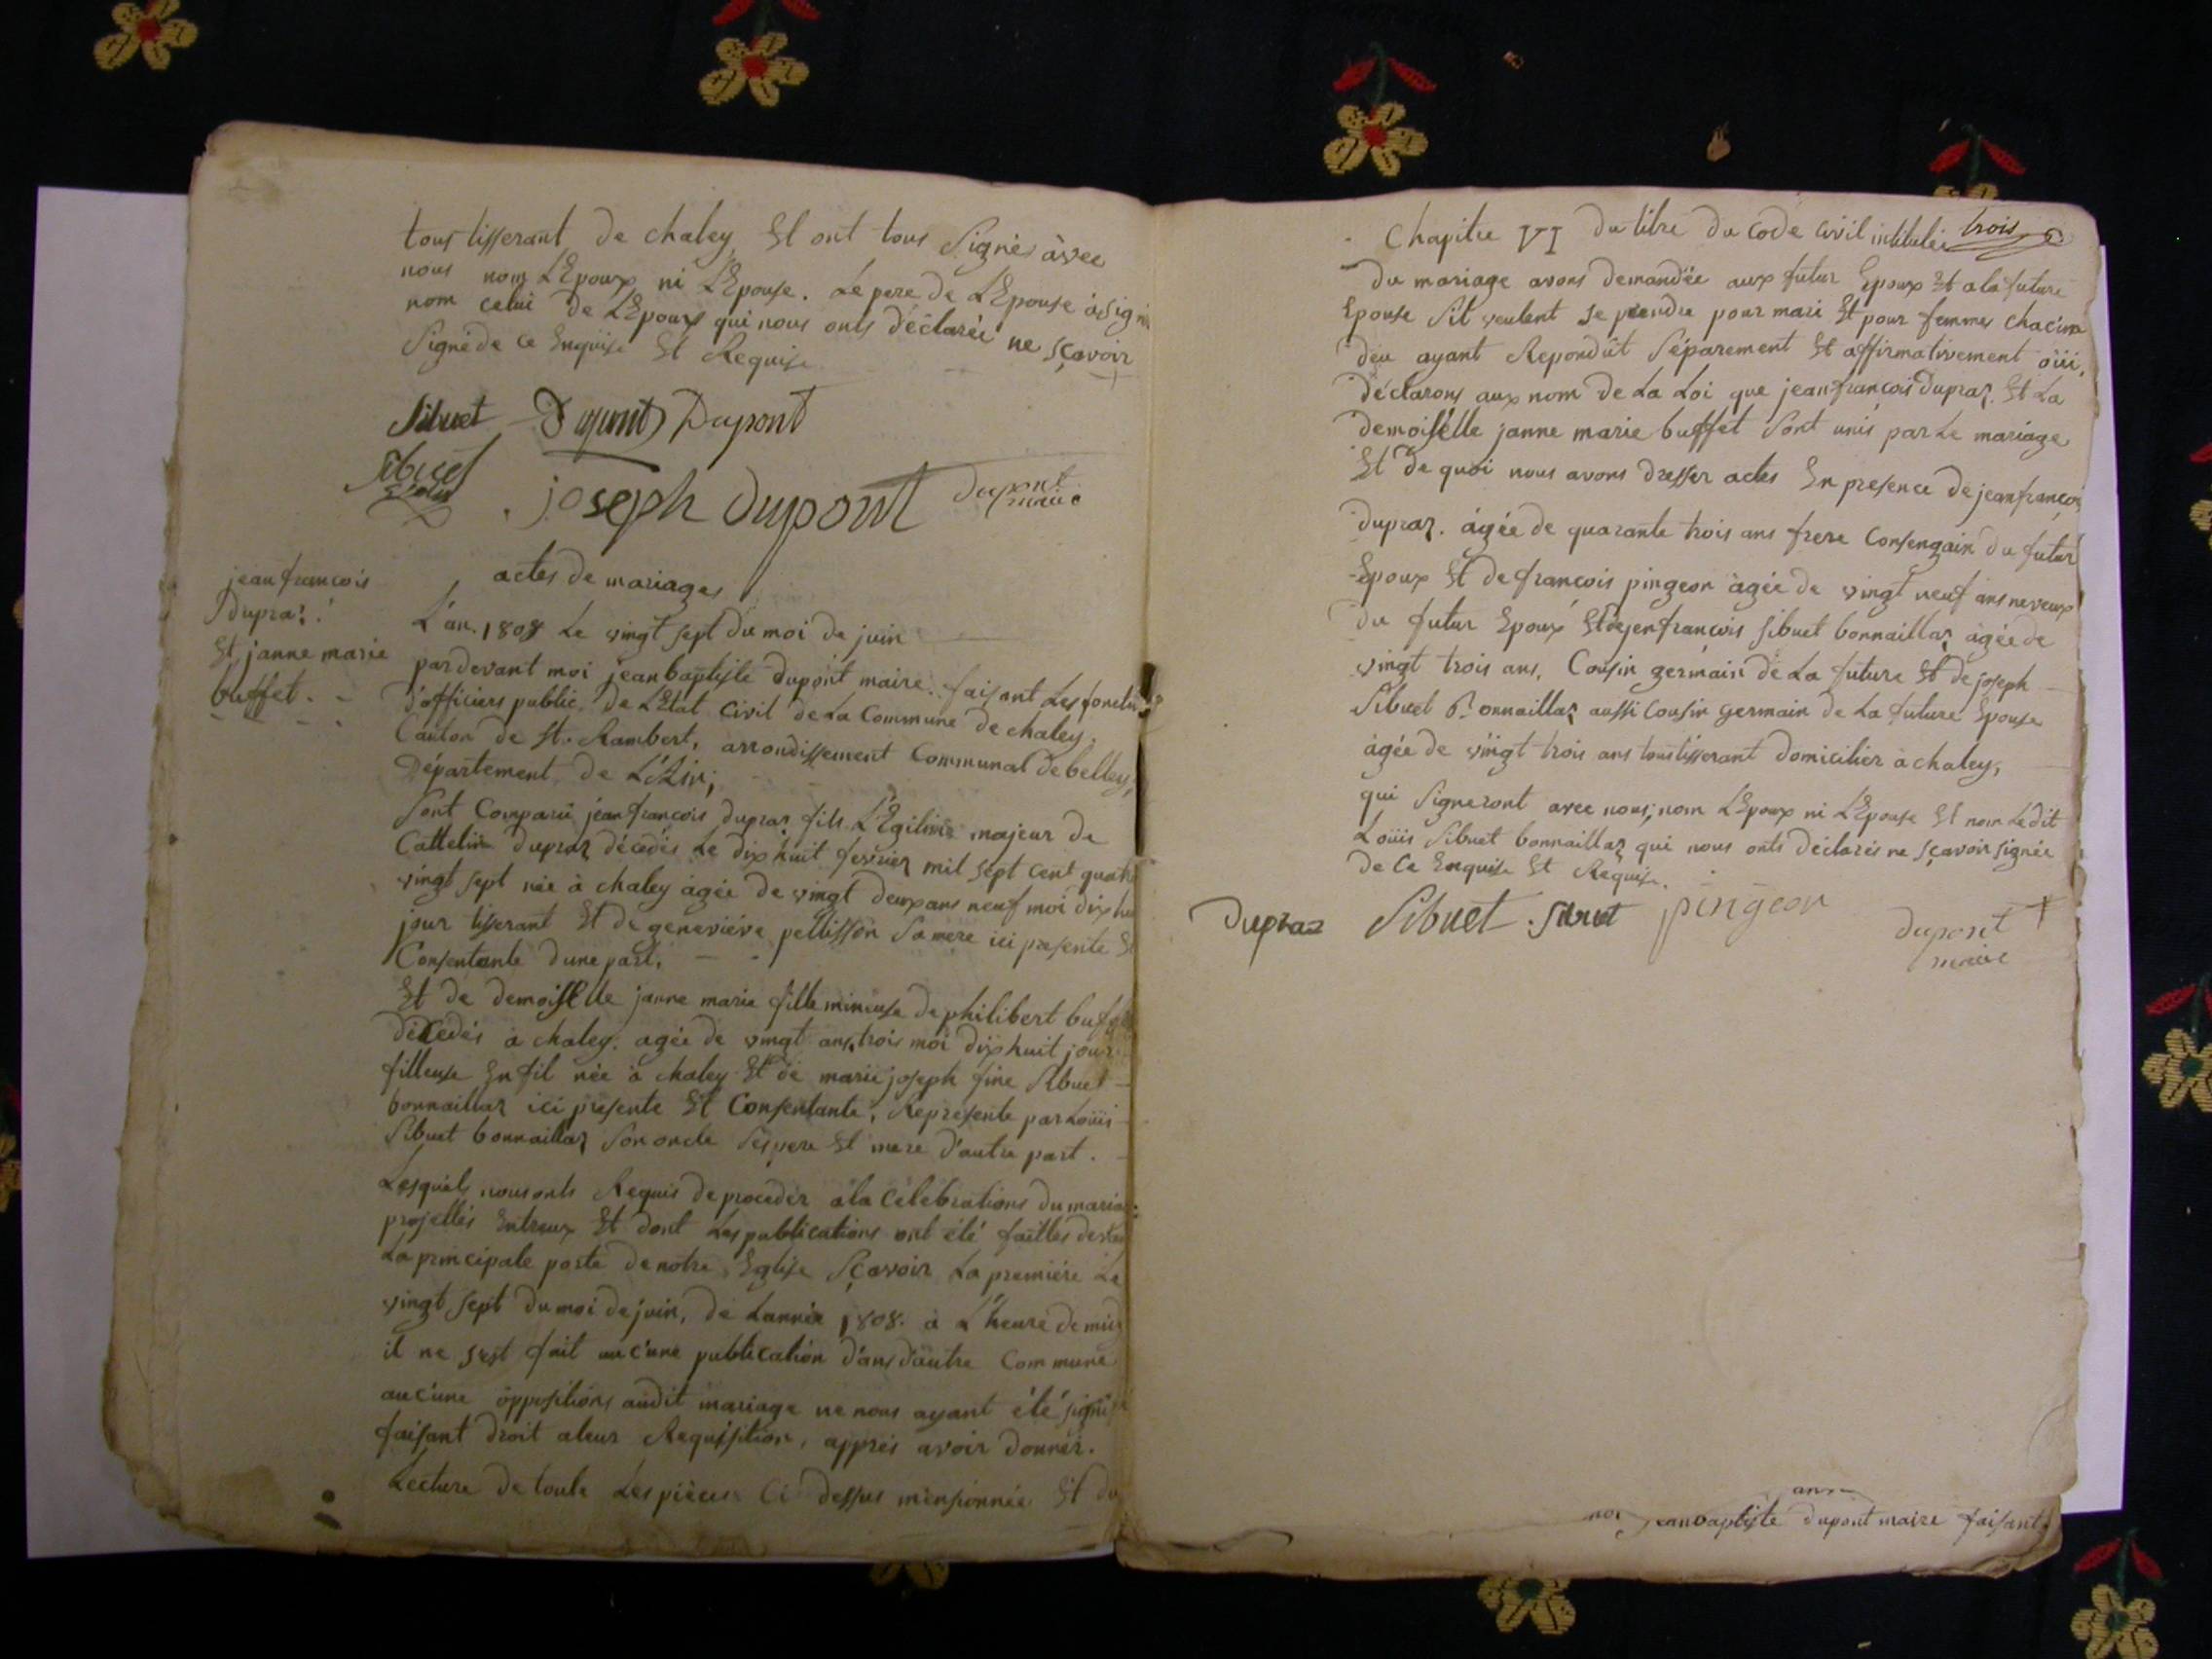 tous tisserant de chaley Et ont tous Signés àvec
nous nom L'Epoux ni L'Epouse. Le pere de L'Epouse à signé
nom celui de L'Epoux qui nous onts déclarée ne sçavoir
Signé de ce Enquise Et Requise
Sibuet Dupont Dupont
Sibuet
joseph dupont dupont
maire
actes de mariages
jean francois
Dupraz.
Et janne marie
buffet.
L'an. 1808 Le vingt sept du moi de juin
pardevant moi jean baptiste dupont maire. faisant Les fonctions
d'officiers public De L'Etat Civil de La Commune de chaley.
Canton de St. Rambert, arrondissement Communal de belley,
Département de L'Ain;
Sont Comparü jean francois dupraz fils L'Egitime majeur de
Cattelin Dupraz décédés Le dix huit fevrier mil sept cent quatre
vingt sept née à chaley âgée de vingt deux ans neuf moi dix hui
jour tisserant Et de geneviéve pellisson Sa mere ici presente Et
Consentante d'une part.
Et de demoiselle janne marie fille mineuse de philibert buffet
décédés à chaley. agée de vingt ans trois moi dix huit jour
filleuse En fil née à chaley Et de marie joseph fine Sibuet
bonnaillaz ici presente Et Consentante, Represente par Loüis
Sibuet bonnaillaz Son oncle Ses pere Et mere d'autre part.
Lesquels nous onts Requis de proceder à la Celébrations du mariage
projettés Entreux Et dont Les publications ont été faittes devan
La principale porte de notre Eglise Sçavoir La premiére Le
vingt sept du moi de juin, de Lannée 1808. à L'heure de midi
il ne sest fait auc'une publication d'ans d'autre Commune
auc'une oppositions audit mariage ne nous ayant été signifi
faisant droit a leur Requisition, apprés avoir donnér.
Lecture de toute Les piéces Ci dessus mensionnée Et du
Chapitre VI du titre du Code Civil intitulé trois
Du mariage avons demandée aux futur Epoux Et a la future
Epouse S'il veulent se prendre pour mari Et pour femmes chac'un
deu ayant Repondüt Séparement Et affirmativement oüi,
Déclarons aux nom de La Loi que jean françois dupraz. Et La
demoiselle janne marie buffet Sont unis par Le mariage
Et de quoi nous avons dresser actes En presence de jean françois
dupraz. âgée de quarante trois ans frere Consengain du futur
Epoux Et de francois pingeon âgée de vingt neuf ans neveux
du futur Epoux Et de jen francois Sibuet bonnaillaz âgée de
vingt trois ans, Cousin germain de La future Et de joseph
Sibuet Bonnaillaz aussi Cousin germain de La future Epouse
àgée de vingt trois ans tous tisserant domicilier à chaley,
qui Signeront avec nous, nom L'Epoux ni L'Epouse Et nom Ledit
Loüis Sibuet bonnaillaz qui nous onts declarés ne sçavoir signée
de Ce Enquise Et Requise.
Dupraz Sibuet Sibuet pingeon
dupont
maire
ans
moi jean baptiste dupont maire faisant